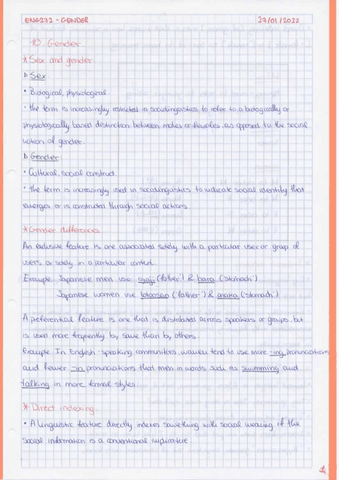 ENG232 - GENDER 27/01/2022
10. Gender
* Sex and gender
D Sex
• Biological, physiological
• the term is increasingly restricted in sociolinguistics to refer to a biologically or
physiologically based distinction between males or females as opposed to the social
notion of gender.
D Gender
• Cultural, social construct
• the term is increasingly used in sociolinguistics to indicate social identity that
emerges or is constructed through social actions.
* Gender differences
An exclusive feature is one associated solely with a particular user or group of
users or solely in a particular context.
Example: Japanese men use oyaji (father') & hara (stomach')
Japanese women use otoosan ('father') & onaka ('stomach')
A preferential feature is one that is distributed across speakers or groups, but
is used more frequently by some than by others.
Example: In English-speaking communities, women tend to use more -ing pronunciations
and fewer -in pronunciations than men in words such as swimming and
talking in more formal styles.
* Direct indexing
• A linguistic feature directly indexes something with social meaning if the
social information is a conventional implicature